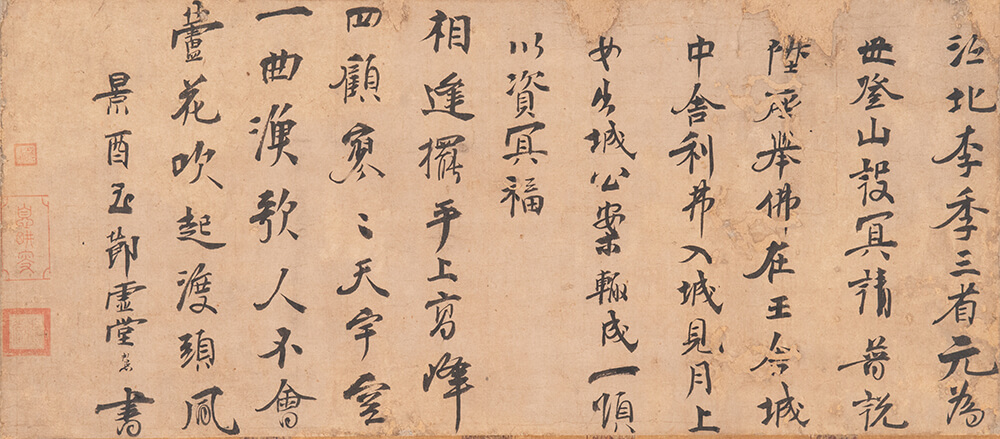 江北李季三省元為
母登山設冥請普説
陞座舉佛在王舍城
中舍利弗入城見月上
女出城公案輙成一頌
以資冥福
相逢擺手上高峰
四顧寥〻天宇空
一曲漁歌人不會
蘆花吹起渡頭風
景酉至節虛堂愚書